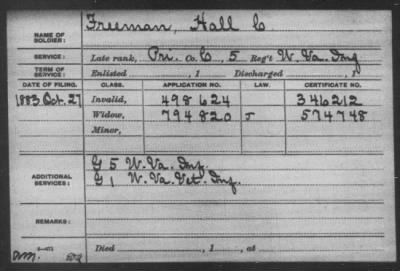 NAME OF SOLDIER: Freeman, Hall C
SERVICE: Late rank, Pri. Co. C, 5 Reg't W. Va. Inf
TERM OF SERVICE: Enlisted , 1 Discharged , 1
DATE OF FILING. CLASS. APPLICATION NO. LAW. CERTIFICATE NO.
1883 Oct. 27 Invalid, 498624 346212
Widow, 794820 J 574748
Minor,
ADDITIONAL SERVICES: G 5 W. Va. Inf.
G 1 W. Va. Vet. Inf.
REMARKS:
Died , 1 , at